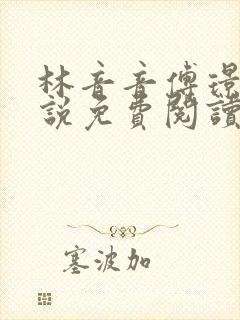 林音音傅璟
說免費閱讀
塞波加